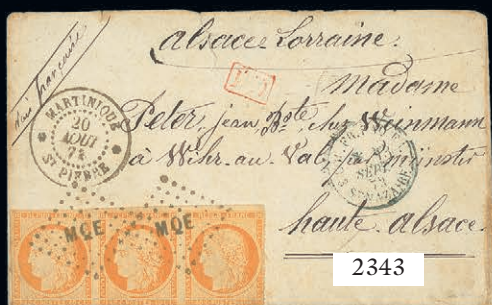 alsace Lorraine.
voie française
P.D.
madame
MARTINIQUE
20
AOUT
ST PIERRE
Peter, jean Bte, chez Weinmann
à Wihr. au Val, près Munster
SEPT
haute alsace
MQE MQE
2343